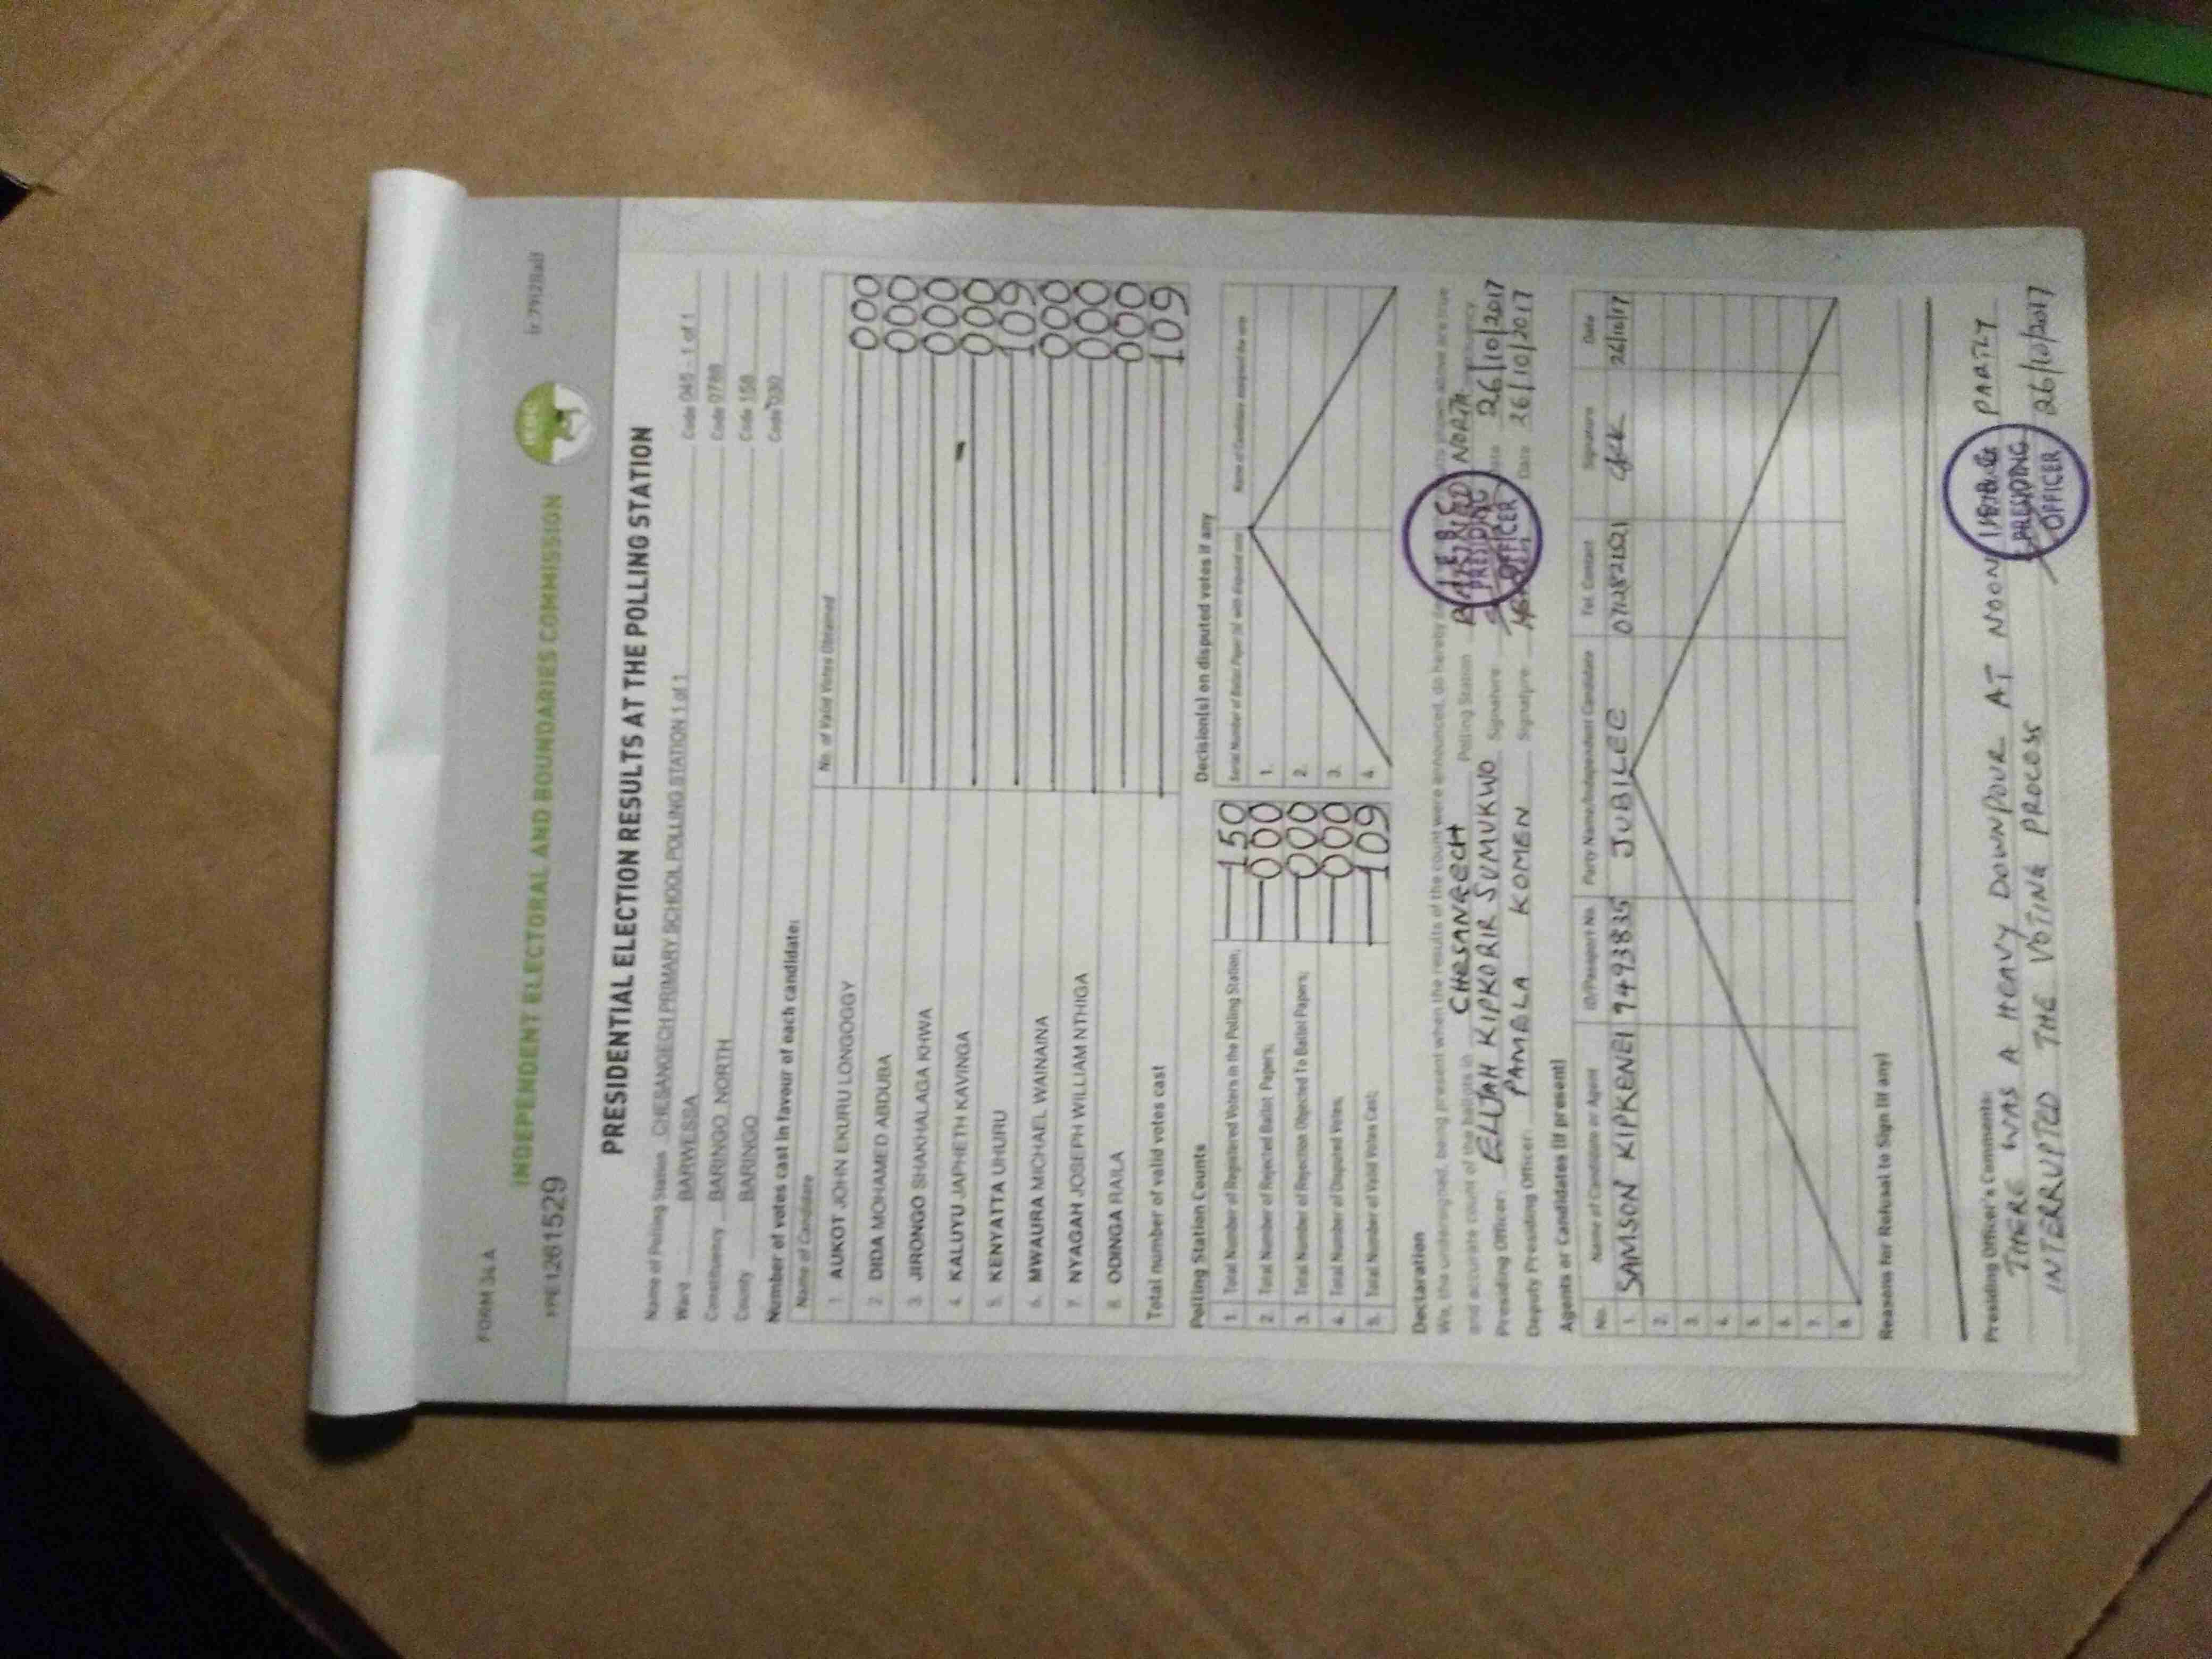 FORM 34 A
INDEPENDENT ELECTORAL AND BOUNDARIES COMMISSION
PRE 1261529
PRESIDENTIAL ELECTION RESULTS AT THE POLLING STATION
Name of Polling Station CHESANGECH PRIMARY SCHOOL POLLING STATION 1 of 1
Ward BARWESSA Code 045 - 1 of 1
Constituency BARINGO NORTH Code 0788
County BARINGO Code 158
Code 030
Number of votes cast in favour of each candidate:
Name of Candidate No. of Valid Votes Obtained
1. AUKOT JOHN EKURU LONGOGGY 000
2. DIDA MOHAMED ABDUBA 000
3. JIRONGO SHAKHALAGA KHWA 000
4. KALUYU JAPHETH KAVINGA 000
5. KENYATTA UHURU 109
6. MWAURA MICHAEL WAINAINA 000
7. NYAGAH JOSEPH WILLIAM NTHIGA 000
8. ODINGA RAILA 000
Total number of valid votes cast 109
Polling Station Counts
1. Total Number of Registered Voters in the Polling Station; 150
2. Total Number of Rejected Ballot Papers; 000
3. Total Number of Rejection Objected To Ballot Papers; 000
4. Total Number of Disputed Votes; 000
5. Total Number of Valid Votes Cast; 109
Decision(s) on disputed votes if any
1.
2.
3.
4.
Declaration
We, the undersigned, being present when the results of the count were announced, do hereby shown above are true
and accurate count of the ballots in CHESANGECH Polling Station NORTH
Presiding Officer: ELIJAH KIPKORIR SUMUKWO Signature Date 26/10/2017
Deputy Presiding Officer: PAMELA KOMEN Signature Date 26/10/2017
I.E.B.C
PRESIDING
OFFICER
Agents or Candidates (if present)
No. Name of Candidate or Agent ID/Passport No. Party Name/Independent Candidate Tel. Contact Signature Date
1. SAMSON KIPKENEI 9493835 JUBILEE 26/10/17
2.
3.
4.
5.
6.
7.
8.
Reasons for Refusal to Sign (if any)
Presiding Officer's Comments:
THERE WAS A HEAVY DOWNPOUR AT NOON PARTLY
INTERRUPTED THE VOTING PROCESS 26/10/2017
PRESIDING
OFFICER